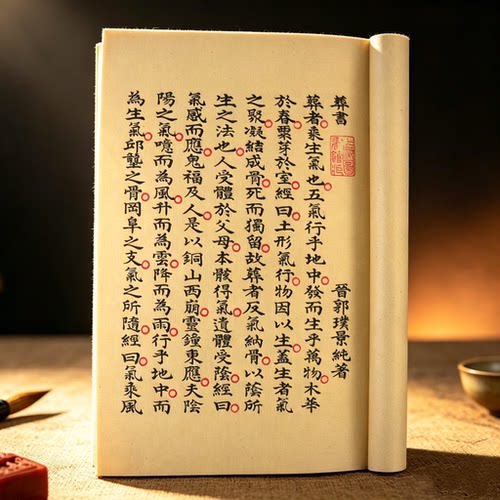 葬書
晉郭璞景純著
葬者乘生氣也五氣行乎地中發而生乎萬物木華
於春粟芽於室經曰土形氣行物因以生蓋生者氣
之聚凝結成骨死而獨留故葬者反氣納骨以蔭所
生之法也人受體於父母本骸得氣遺體受蔭經曰
氣感而應鬼福及人是以銅山西崩靈鐘東應夫陰
陽之氣噫而為風升而為雲降而為雨行乎地中而
為生氣邱壟之骨岡阜之支氣之所隨經曰氣乘風